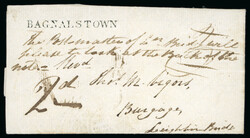 BAGNALSTOWN
The Postmaster of Len Bridge will
please to look at the back of the
note
2
Thos. M. Vigors,
Burgage,
Leighlin Bridge